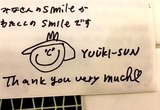 みなさんのsmileが
わたしのsmileです
YUUKI-SUN
Thank you very much